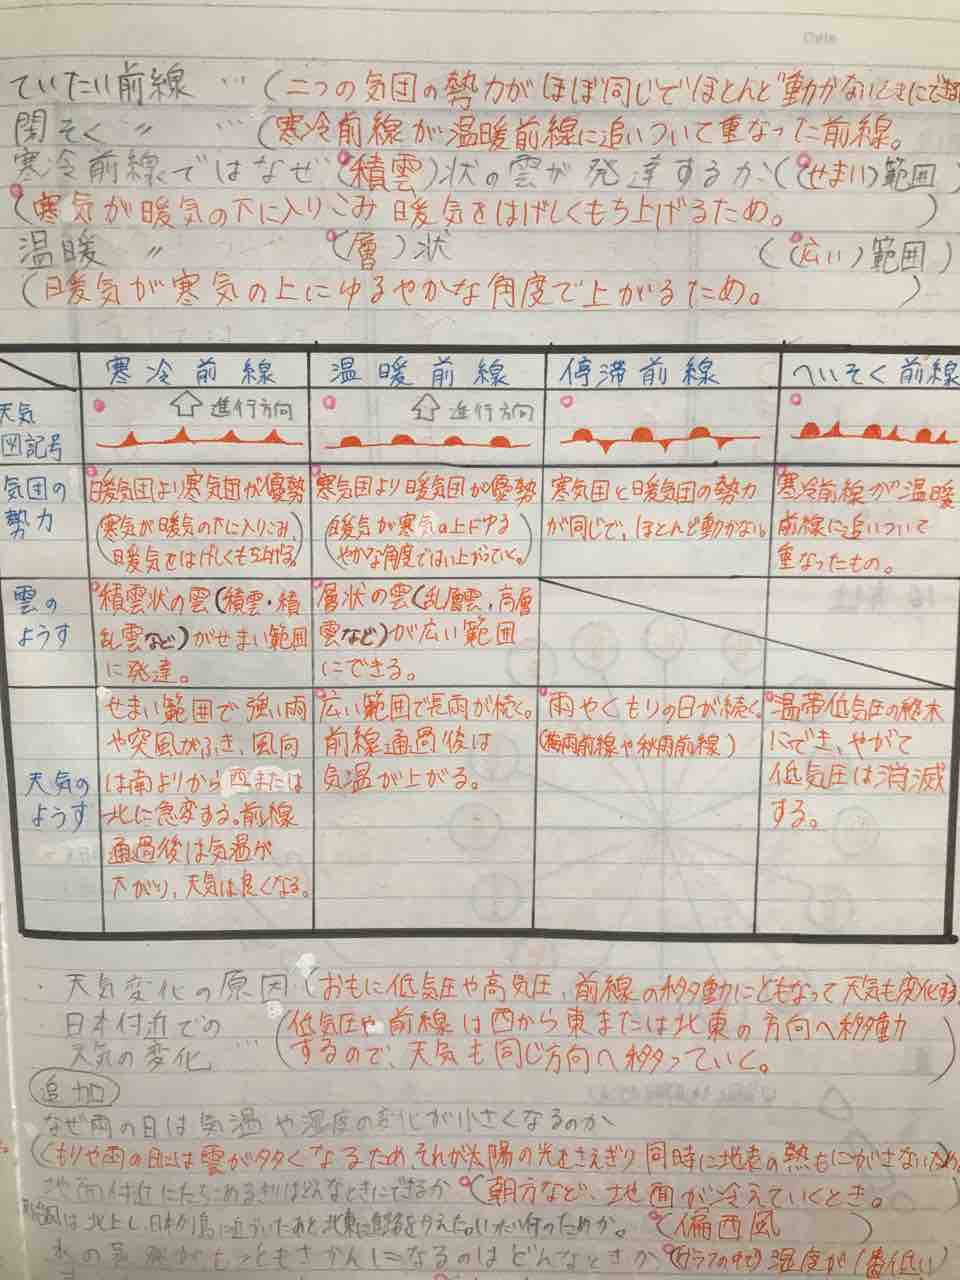 Date
ていたい前線 … (二つの気団の勢力がほぼ同じでほとんど動かないときにできる
閉そく 〃 … (寒冷前線が温暖前線に追いついて重なった前線。
寒冷前線ではなぜ(積雲)状の雲が発達するか((せまい)範囲)
(寒気が暖気の下に入りこみ暖気をはげしくもち上げるため。 )
温暖 〃 (層)状 ((広い)範囲)
(暖気が寒気の上にゆるやかな角度で上がるため。 )
寒冷前線 温暖前線 停滞前線 へいそく前線
天気 進行方向 進行方向
図記号
気団の 暖気団より寒気団が優勢 寒気団より暖気団が優勢 寒気団と暖気団の勢力 寒冷前線が温暖
勢力 (寒気が暖気の下に入りこみ、 (暖気が寒気の上にゆる が同じで、ほとんど動かない。 前線に追いついて
暖気をはげしくもち上げる。) やかな角度ではい上がっていく。) 重なったもの。
雲の 積雲状の雲(積雲・積 層状の雲(乱層雲,高層
ようす 乱雲など)がせまい範囲 雲など)が広い範囲
に発達。 にできる。
せまい範囲で強い雨 広い範囲で長雨が続く。 雨やくもりの日が続く。 温帯低気圧の終末
や突風がふき、風向 前線通過後は (梅雨前線や秋雨前線) にでき、やがて
天気の は南よりから西または 気温が上がる。 低気圧は消滅
ようす 北に急変する。前線 する。
通過後は気温が
下がり、天気は良くなる。
・天気変化の原因(おもに低気圧や高気圧、前線の移動にともなって天気も変化する
・日本付近での (低気圧や前線は西から東または北東の方向へ移動
天気の変化 … するので、天気も同じ方向へ移っていく。 )
追加
なぜ雨の日は気温や湿度の変化が小さくなるのか
(くもりや雨の日には雲が多くなるため、それが太陽の光をさえぎり同時に地表の熱もにがさないため。
地面付近にたちこめるきりはどんなときにできるか (朝方など、地面が冷えていくとき。
は北上し、日本列島に近づいたあと、北東に進路を変えた。いたい何のためか。 (偏西風 )
水の蒸発がもっともさかんになるのはどんなときか (グラフの中で)湿度が1番低い